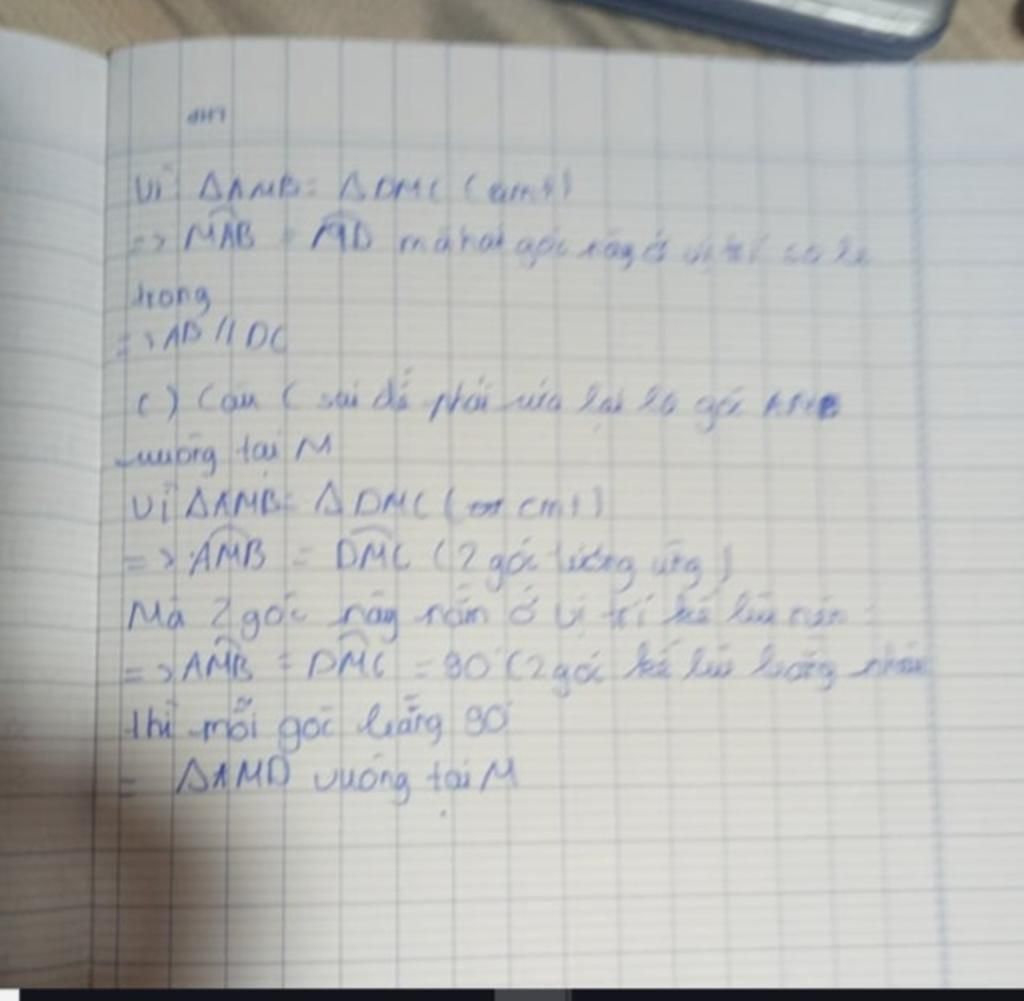 Vì ΔAMB = ΔDMC (cmt)
=> MAB = MD mà hai góc này ở vị trí so le
trong
=> AB // DC
c) Câu C sai đề phải sửa lại là góc AMB
vuông tại M
Vì ΔAMB = ΔDMC (cmt)
=> AMB = DMC (2 góc tương ứng)
Mà 2 góc này nằm ở vị trí kề bù nên
=> AMB = DMC = 90° (2 góc kề bù bằng nhau
thì mỗi góc bằng 90°
= ΔAMD vuông tại M